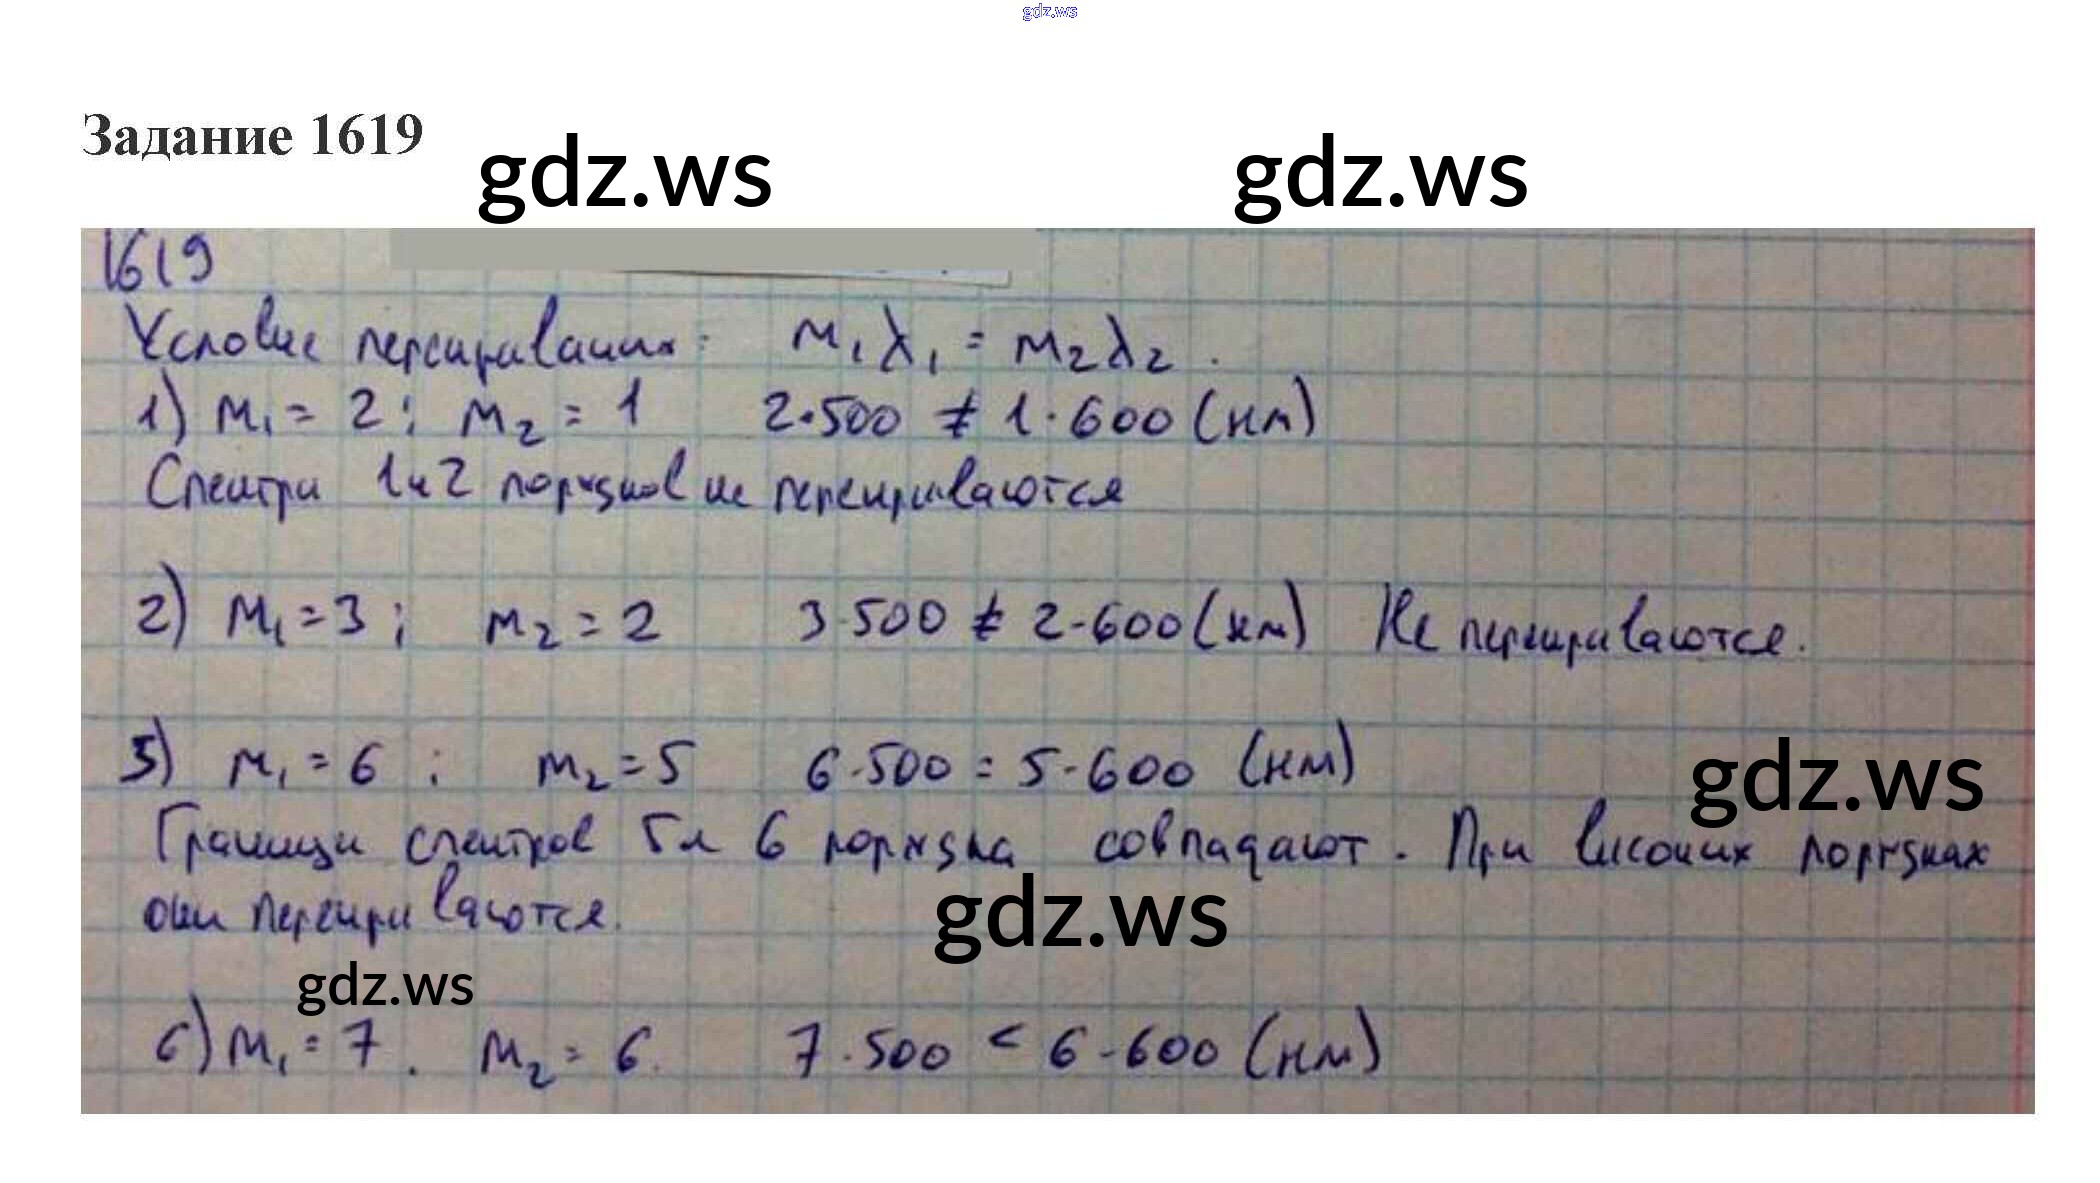 gdz.ws
Задание 1619
gdz.ws gdz.ws
1619
Условие перекривания: m₁λ₁ = m₂λ₂.
1) m₁ = 2; m₂ = 1 2·500 ≠ 1·600 (нм)
Спектри 1 и 2 порядков не перекриваются
2) m₁ = 3; m₂ = 2 3·500 ≠ 2·600 (нм) Не перекриваются.
5) m₁ = 6; m₂ = 5 6·500 = 5·600 (нм)
gdz.ws
Граници спектров 5 и 6 порядка совпадают. При високих порядках
они перекриваются.
gdz.ws
gdz.ws
6) m₁ = 7. m₂ = 6. 7·500 < 6·600 (нм)